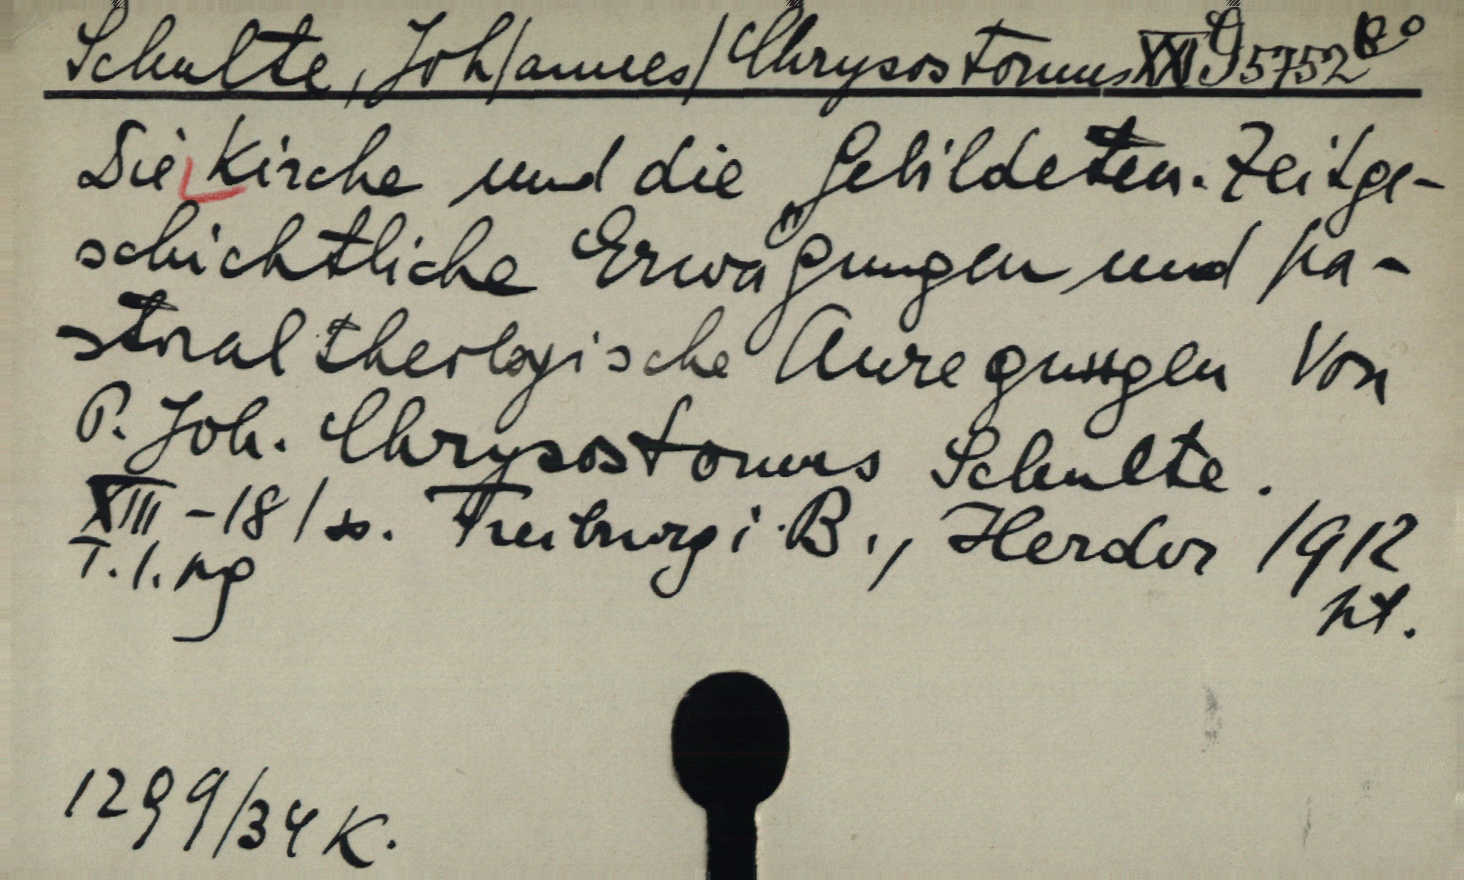 Schulte, Joh/annes/ Chrysostomus XXI G 5752
Die Kirche und die Gebildeten. Zeitge-
schichtliche Erwägungen und pa-
storaltheologische Anregungen Von
P. Joh. Chrysostomus Schulte.
XIII - 18/ s. Freiburg i. B., Herder 1912
ht.
1299/34 K.